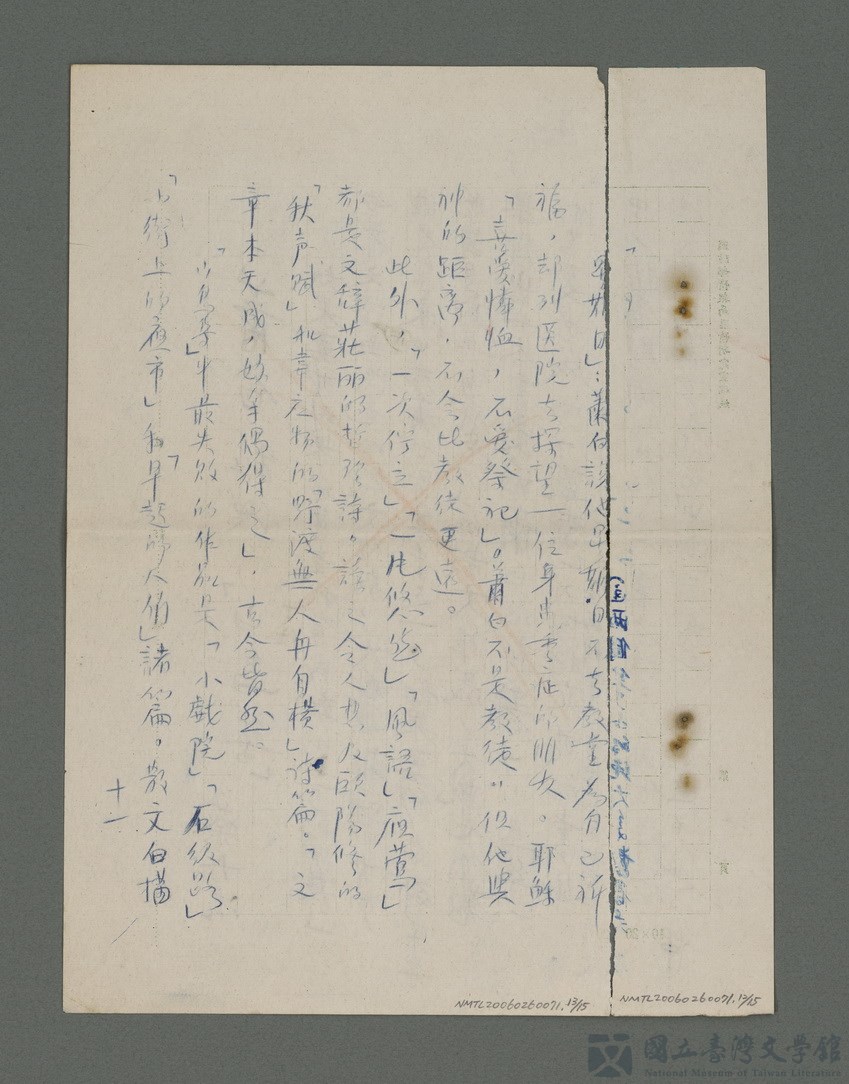 星期日」：蕭白該他早期日不去教堂為自己祈
福，却到医院去探望一位身患重症的朋友。耶穌
「喜愛憐恤，不愛祭祀」。蕭白不是教徒，但他與
神的距离，不会比教徒更遠。
此外，「一次停立」「一片悠然」「風語」「夜鶯」
都是文辞莊丽的哲理詩。讀之令人想及歐陽修的
「秋声賦」和韋应物的「野渡無人舟自横」詩篇。「文
章本天成，妙手偶得之」，古今皆然。
集」中最失敗的作品是「小戲院」「石级路」
「小街上的夜市」和「早起的人们」諸篇。散文白描
十一
NMTL20060260071.13/15
NMTL20060260071.13/15
國立臺灣文學館
National Museum of Taiwan Literature